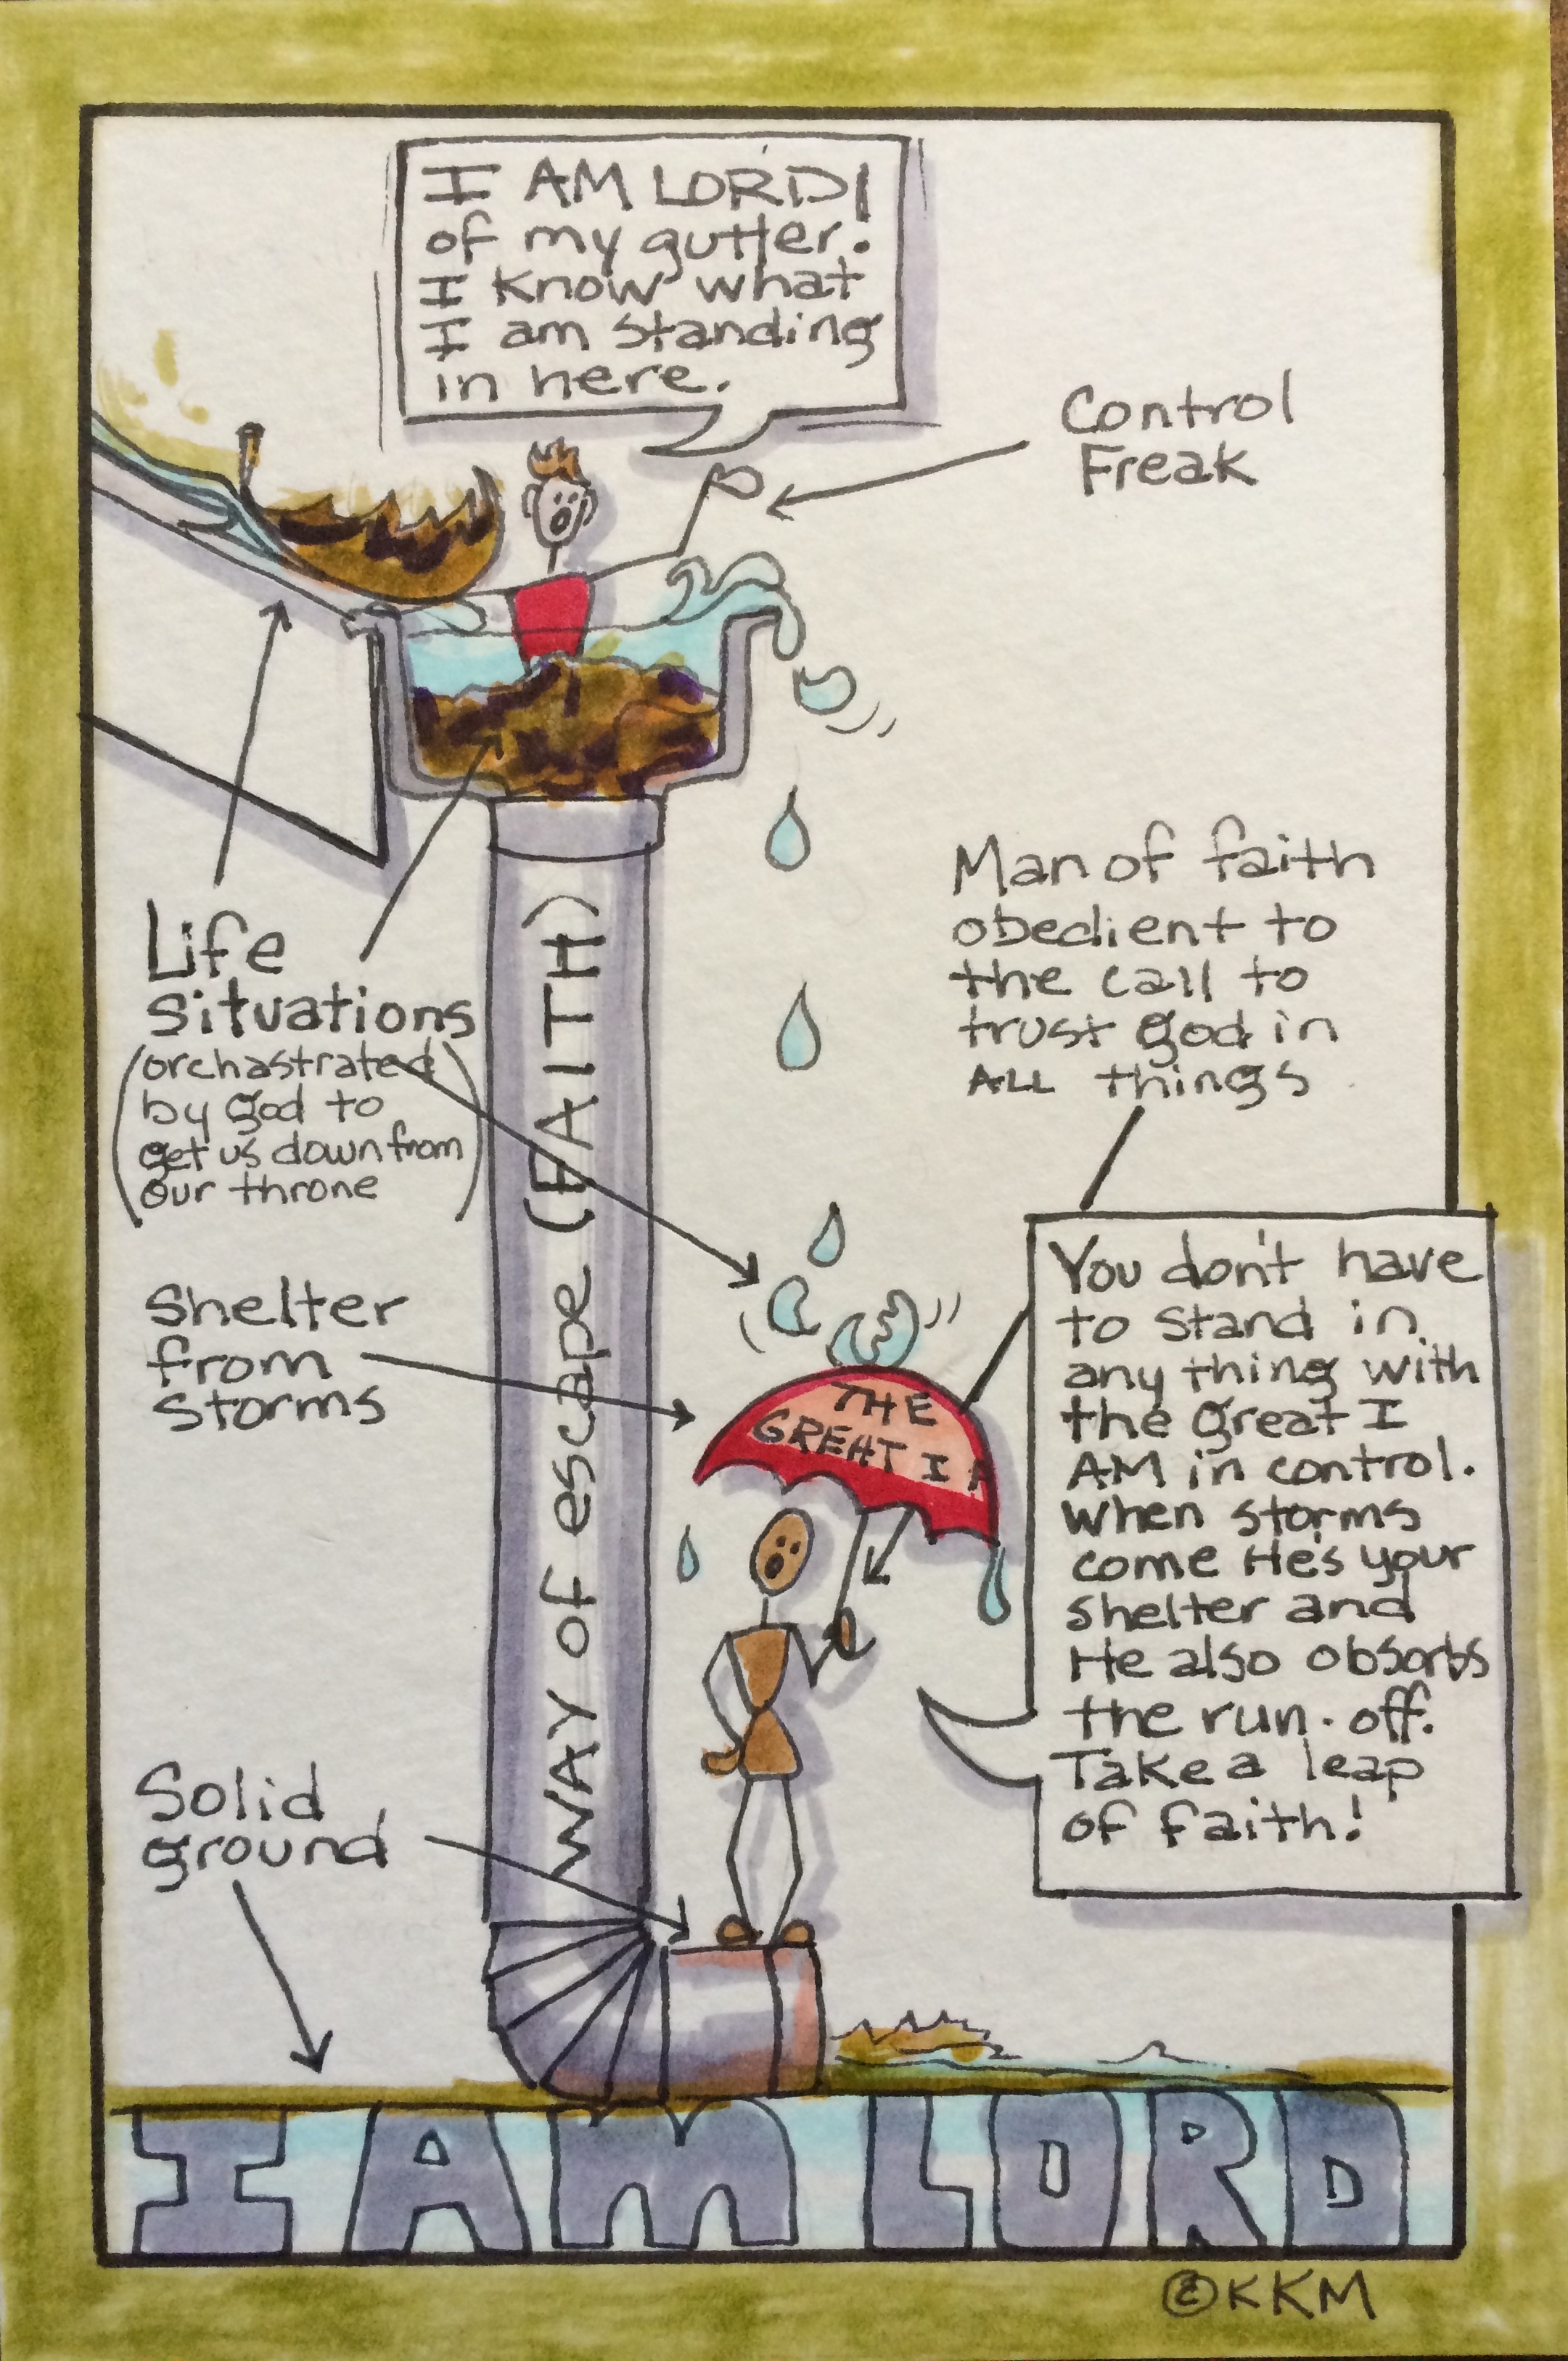 I AM LORD!
of my gutter.
I know what
I am standing
in here.
Control
Freak
Life
Situations
(orchastrated
by god to
get us down from
our throne)
Man of faith
obedient to
the call to
trust god in
ALL things
WAY of escape (FAITH)
Shelter
from
storms
THE
GREAT I A
You don't have
to stand in
any thing with
the great I
AM in control.
When storms
come He's your
shelter and
He also obsorbs
the run-off.
Take a leap
of faith!
Solid
ground
I AM LORD
©KKM